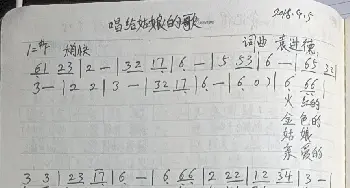 唱给姑娘的歌
2018.9.5
1=#F 稍快 词曲 袁进德
61 23 | 2 — | 32 17 | 6 — | 5 53 | 6 — | 65 32 |
3 — | 2 2 | 3 — | 32 17 | 6 — | 6 03 | 6 66 |
火红的
金色的
姑娘
亲爱的
3 3 | 23 17 | 6 — | 6 66 | 2 22 | 12 34 | 3 — |